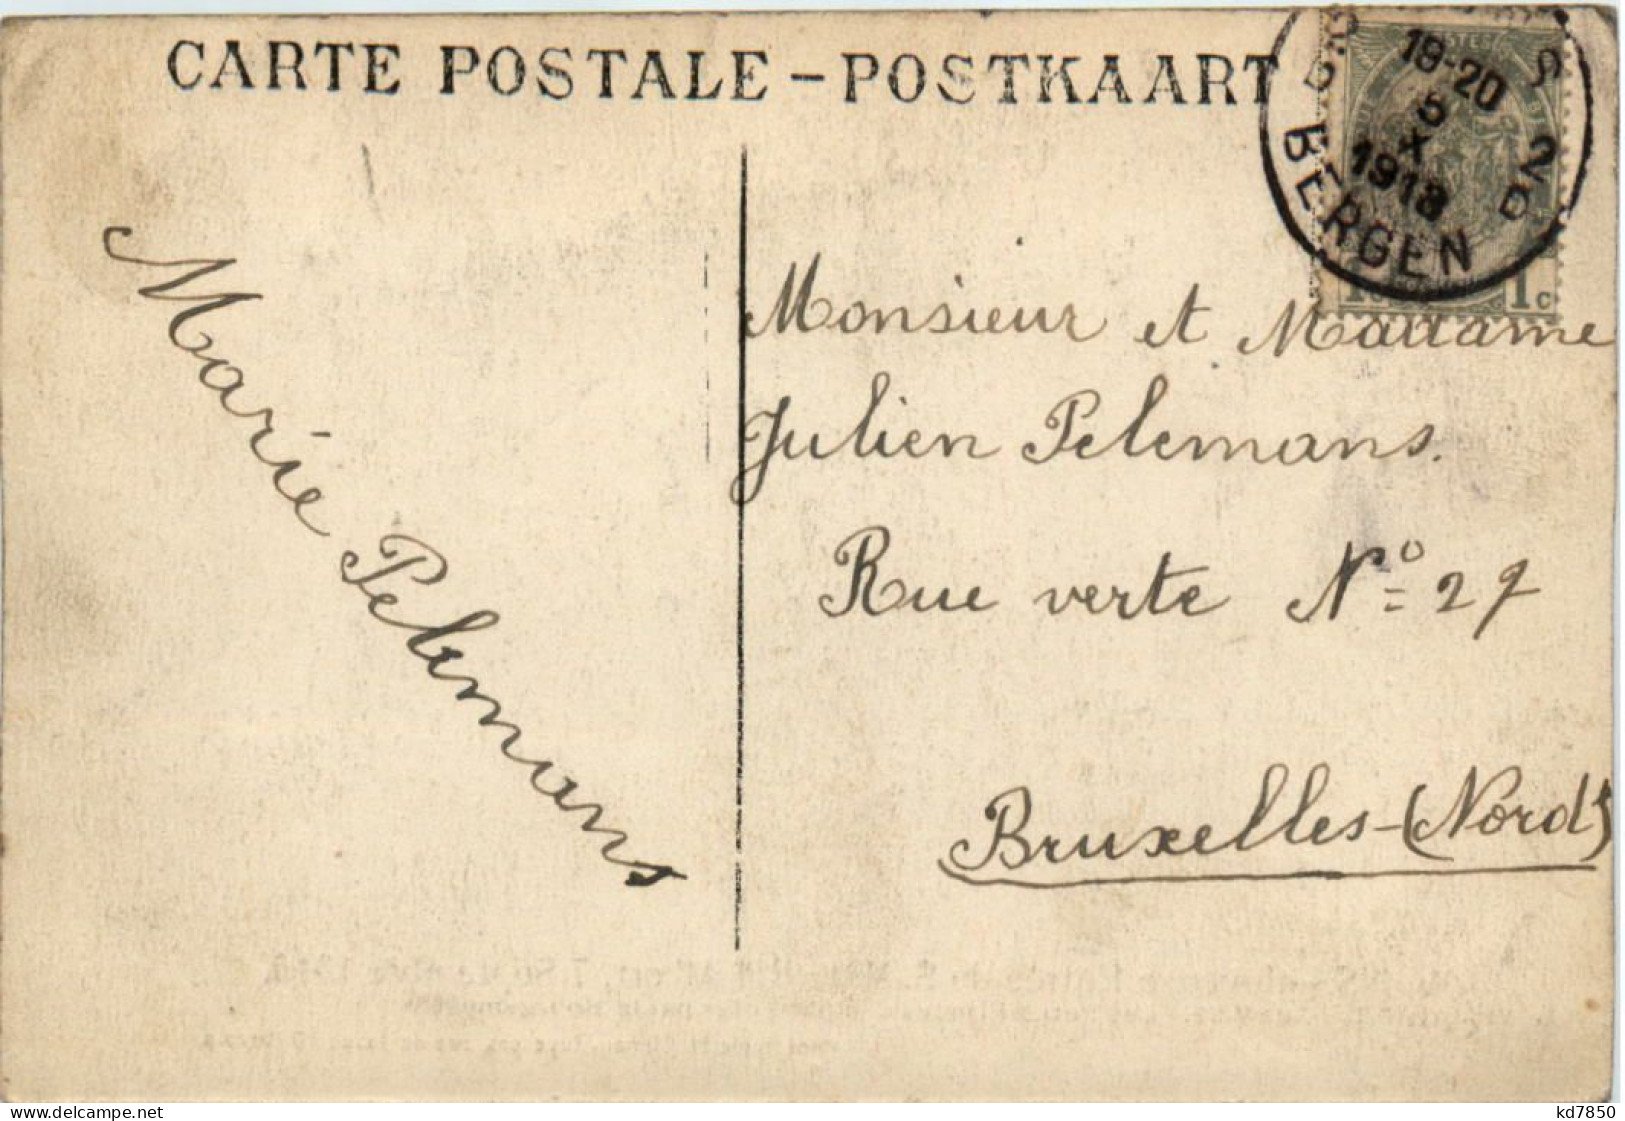 CARTE POSTALE – POSTKAART
19-20
5
X
1913
BERGEN
2
D
1c
Marie Pelemans
Monsieur et Madame
Julien Pelemans.
Rue verte Nº 27
Bruxelles-(Nord)
www.delcampe.net
kd7850